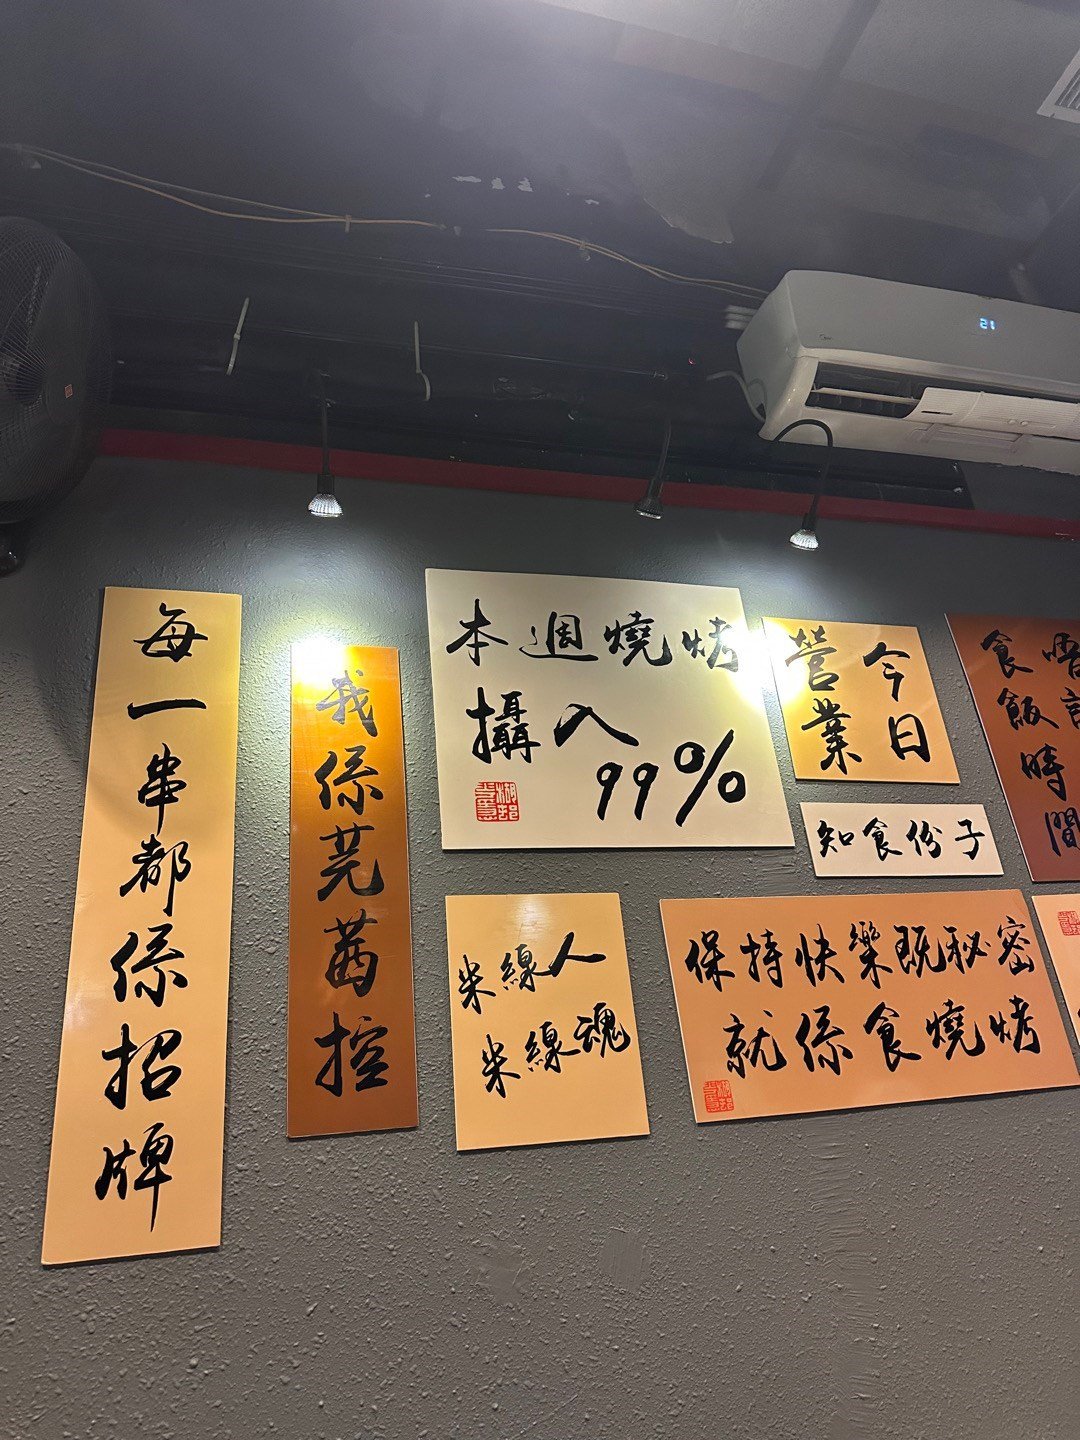 每一串都係招牌
我係芫茜控
本週燒烤
攝入
99%
米線人
米線魂
今日
營業
知食份子
保持快樂既秘密
就係食燒烤
食飯時間
21